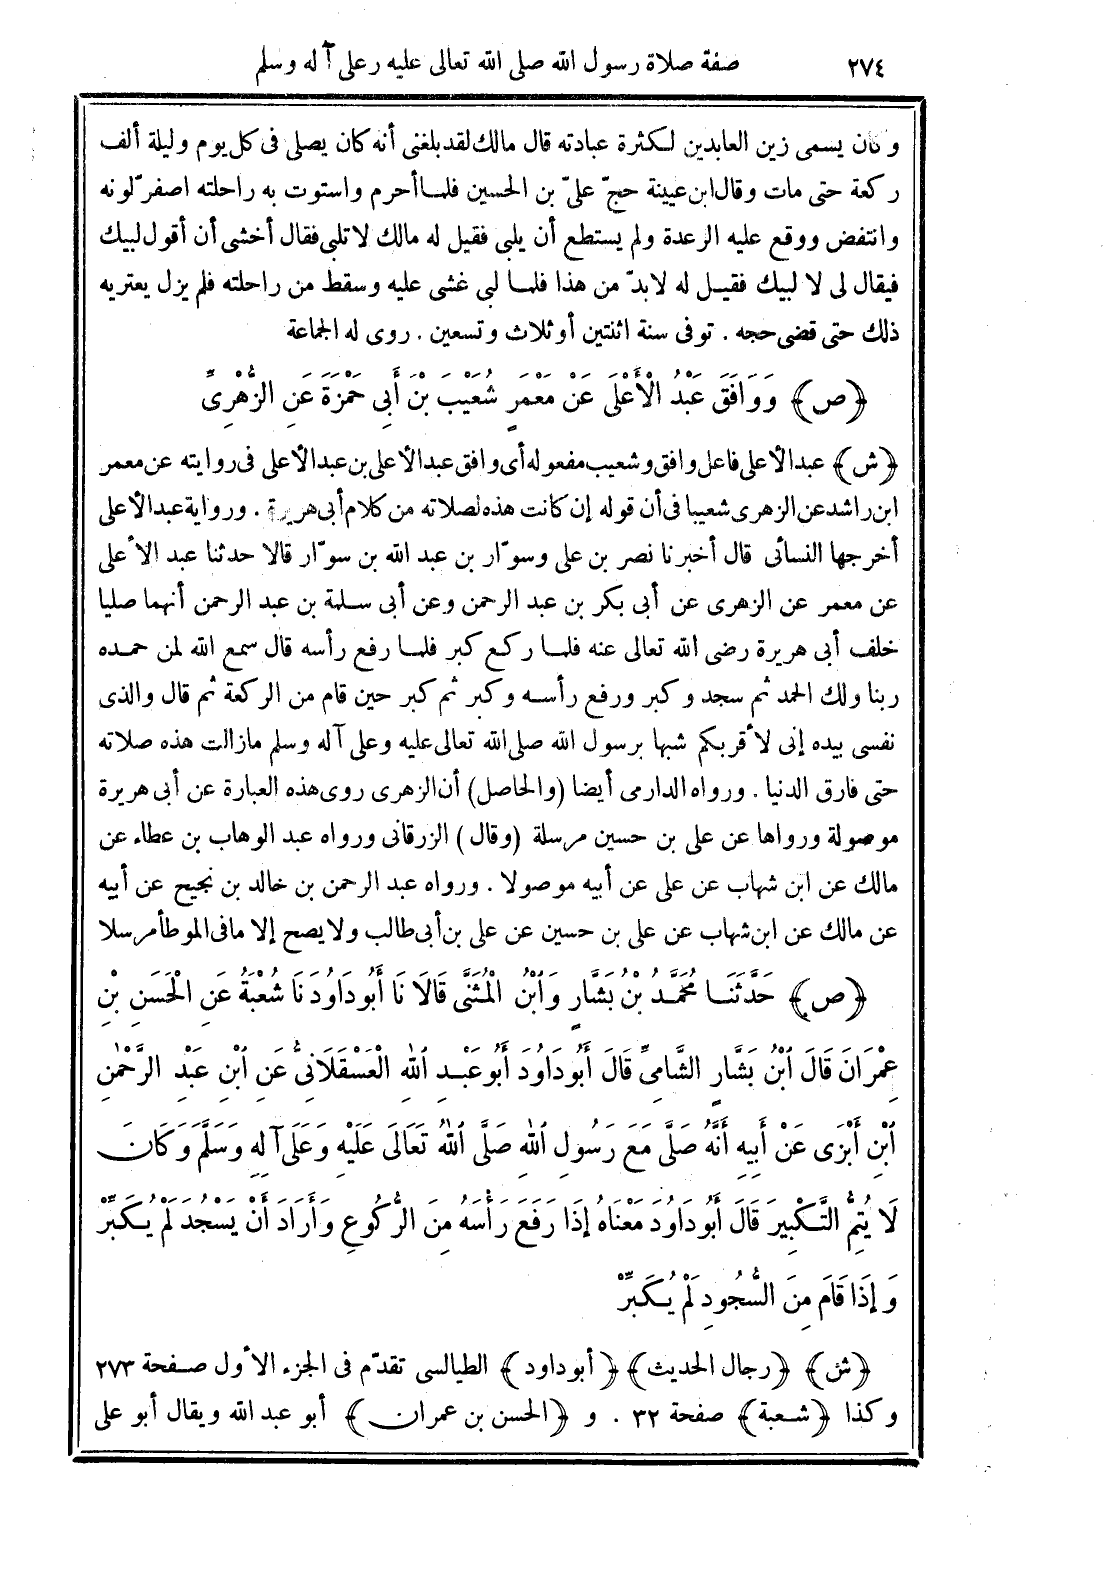 ٢٧٤ صفة صلاة رسول الله صلى الله تعالى عليه وعلى آله وسلم
وكان يسمى زين العابدين لكثرة عبادته قال مالك لقد بلغنى أنه كان يصلى فى كل يوم وليلة ألف
ركعة حتى مات وقال ابن عيينة حجّ علىّ بن الحسين فلما أحرم واستوت به راحلته اصفرّ لونه
وانتفض ووقع عليه الرعدة ولم يستطع أن يلبى فقيل له مالك لا تلبى فقال أخشى أن أقول لبيك
فيقال لى لا لبيك فقيل له لابدّ من هذا فلما لبى غشى عليه وسقط من راحلته فلم يزل يعتريه
ذلك حتى قضى حجه . توفى سنة اثنتين أو ثلاث وتسعين . روى له الجماعة
﴿ص﴾ وَوَافَقَ عَبْدُ الْأَعْلَى عَنْ مَعْمَرٍ شُعَيْبَ بْنَ أَبِى حَمْزَةَ عَنِ الزُّهْرِىِّ
﴿ش﴾ عبد الأعلى فاعل وافق وشعيب مفعوله أى وافق عبد الأعلى بن عبد الأعلى فى روايته عن معمر
ابن راشد عن الزهرى شعيبا فى أن قوله إن كانت هذه لصلاته من كلام أبى هريرة . ورواية عبد الأعلى
أخرجها النسائى قال أخبرنا نصر بن على وسوّار بن عبد الله بن سوّار قالا حدثنا عبد الأعلى
عن معمر عن الزهرى عن أبى بكر بن عبد الرحمن وعن أبى سلمة بن عبد الرحمن أنهما صليا
خلف أبى هريرة رضى الله تعالى عنه فلما ركع كبر فلما رفع رأسه قال سمع الله لمن حمده
ربنا ولك الحمد ثم سجد وكبر ورفع رأسه وكبر ثم كبر حين قام من الركعة ثم قال والذى
نفسى بيده إنى لأقربكم شبها برسول الله صلى الله تعالى عليه وعلى آله وسلم مازالت هذه صلاته
حتى فارق الدنيا . ورواه الدارمى أيضا (والحاصل) أن الزهرى روى هذه العبارة عن أبى هريرة
موصولة ورواها عن على بن حسين مرسلة (وقال) الزرقانى ورواه عبد الوهاب بن عطاء عن
مالك عن ابن شهاب عن على عن أبيه موصولا . ورواه عبد الرحمن بن خالد بن نجيح عن أبيه
عن مالك عن ابن شهاب عن على بن حسين عن على بن أبى طالب ولا يصح إلا ما فى الموطأ مرسلا
﴿ص﴾ حَدَّثَنَا مُحَمَّدُ بْنُ بَشَّارٍ وَابْنُ الْمُثَنَّى قَالَا نَا أَبُو دَاوُدَ نَا شُعْبَةُ عَنِ الْحَسَنِ بْنِ
عِمْرَانَ قَالَ ابْنُ بَشَّارٍ الشَّامِىِّ قَالَ أَبُو دَاوُدَ أَبُو عَبْدِ اللهِ الْعَسْقَلَانِىُّ عَنِ ابْنِ عَبْدِ الرَّحْمٰنِ
ابْنِ أَبْزَى عَنْ أَبِيهِ أَنَّهُ صَلَّى مَعَ رَسُولِ اللهِ صَلَّى اللهُ تَعَالَى عَلَيْهِ وَعَلَى آلِهِ وَسَلَّمَ وَكَانَ
لَا يُتِمُّ التَّكْبِيرَ قَالَ أَبُو دَاوُدَ مَعْنَاهُ إِذَا رَفَعَ رَأْسَهُ مِنَ الرُّكُوعِ وَأَرَادَ أَنْ يَسْجُدَ لَمْ يُكَبِّرْ
وَإِذَا قَامَ مِنَ السُّجُودِ لَمْ يُكَبِّرْ
﴿ش﴾ ﴿رجال الحديث﴾ ﴿أبو داود﴾ الطيالسى تقدّم فى الجزء الأول صفحة ٢٧٣
وكذا ﴿شعبة﴾ صفحة ٣٢ . و ﴿الحسن بن عمران﴾ أبو عبد الله ويقال أبو على